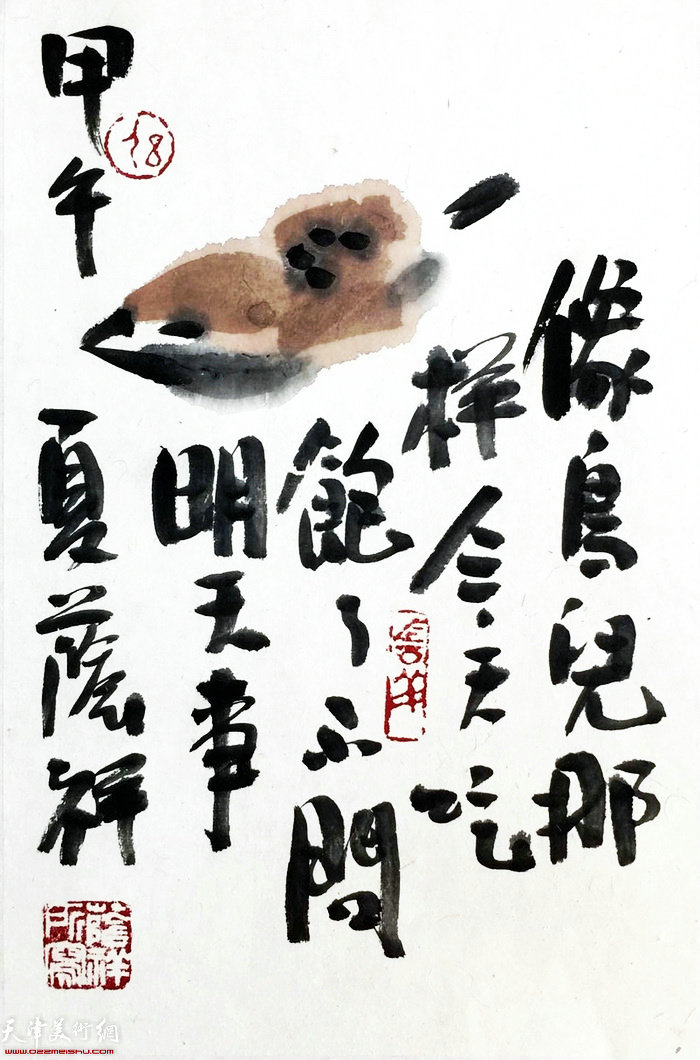 像鳥兒那
样今天吃
飽了不問
明天事
甲午
夏蔭祥
蔭祥所寫
天津美術網
www.022meishu.com